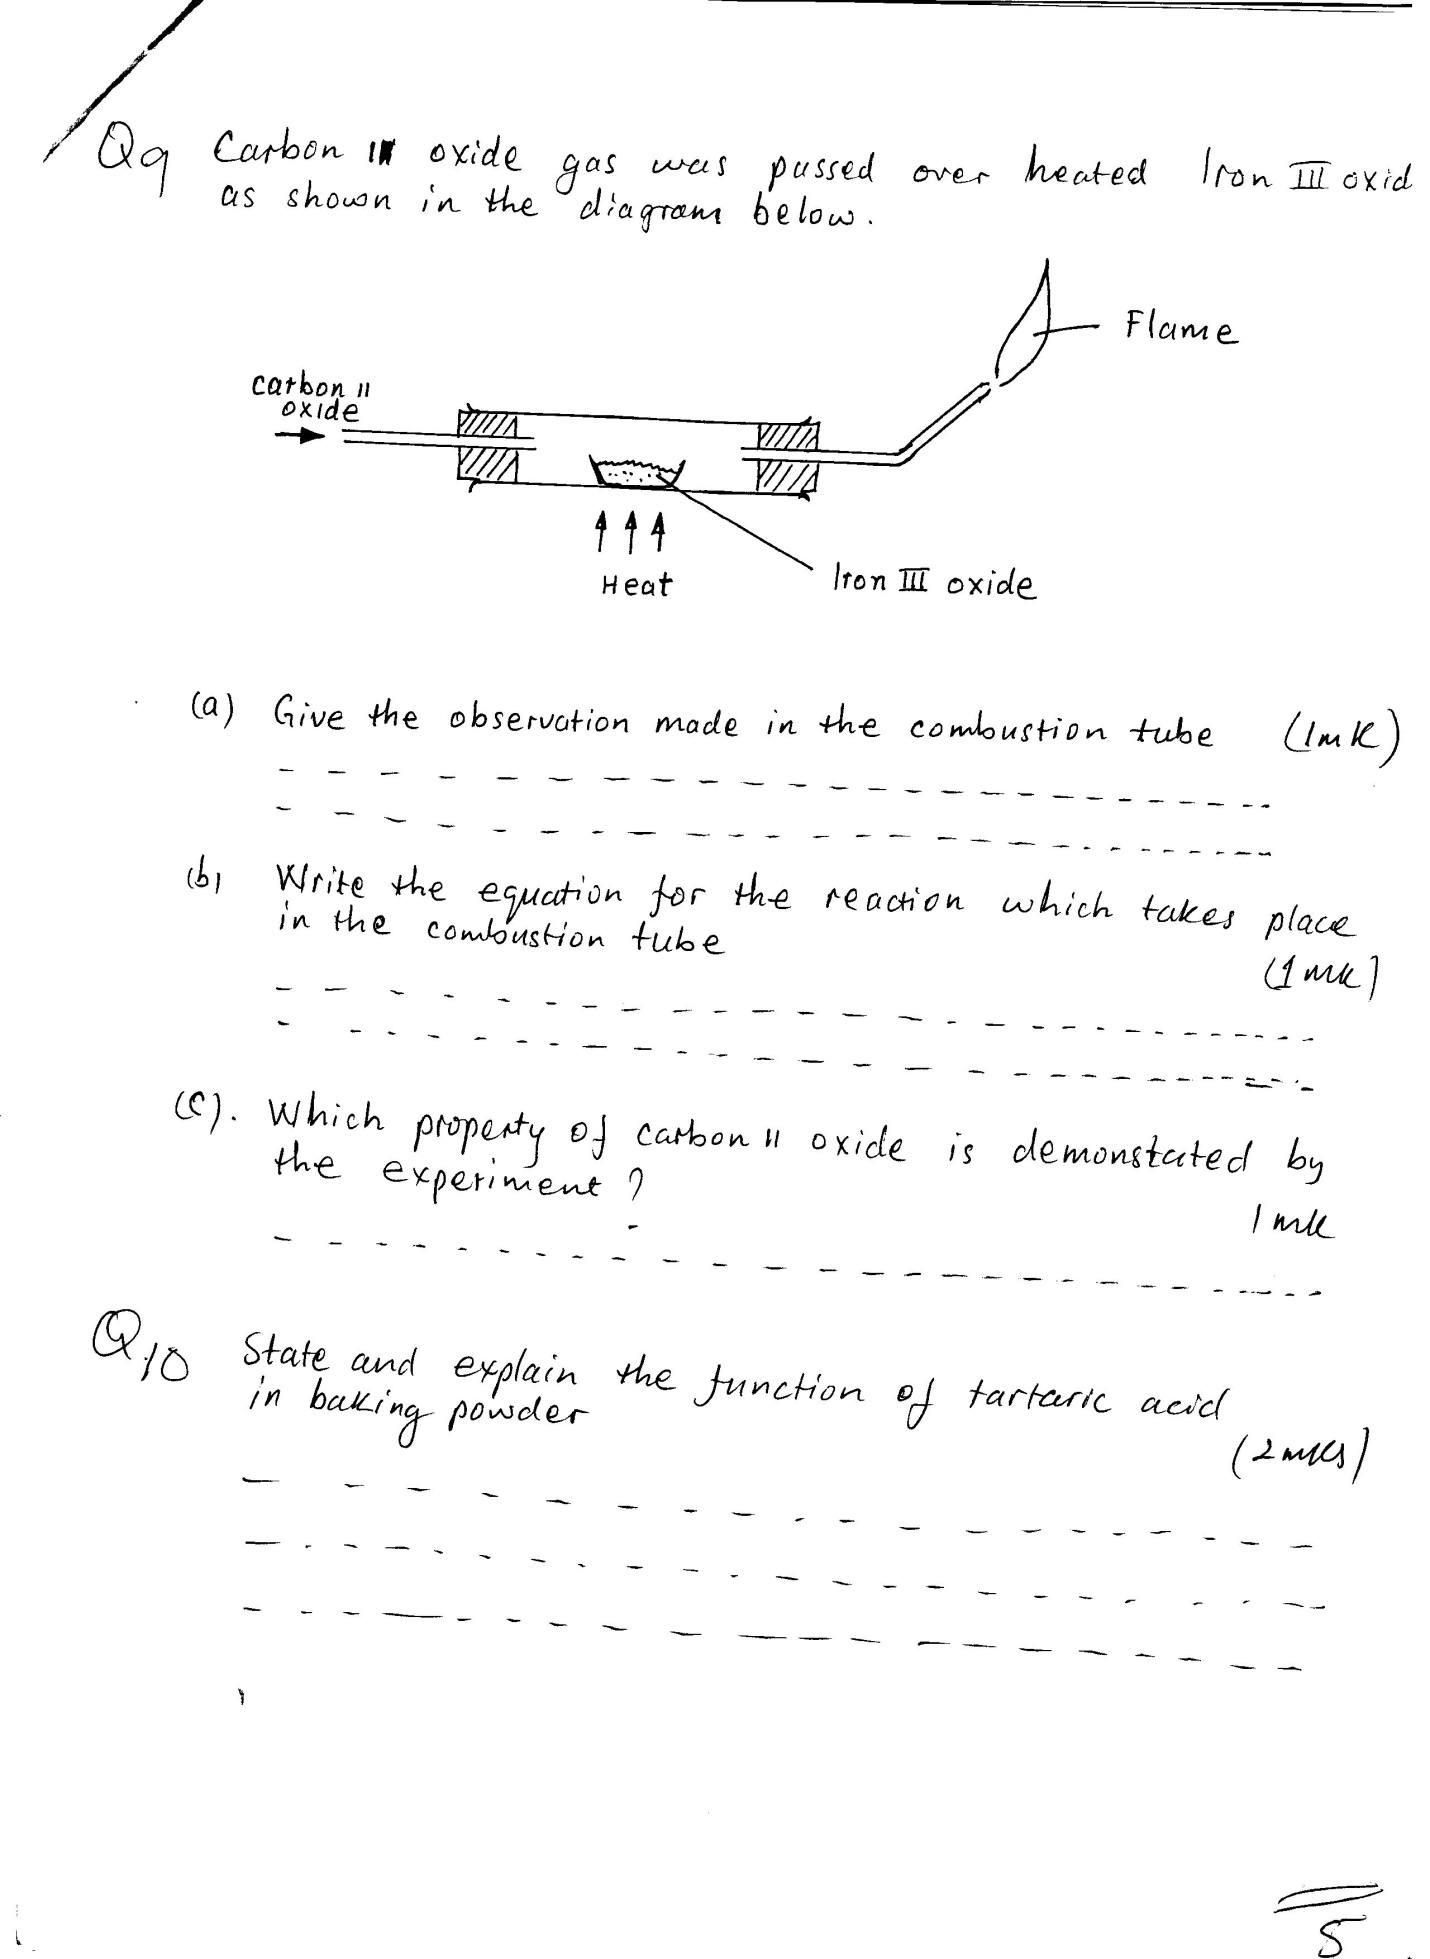 Q9 Carbon II oxide gas was passed over heated Iron III oxid
as shown in the diagram below.
Flame
carbon II
oxide
Heat
Iron III oxide
(a) Give the observation made in the combustion tube (1mk)
(b) Write the equation for the reaction which takes place
in the combustion tube
(1mk)
(c). Which property of carbon II oxide is demonstated by
the experiment?
1mk
Q10 State and explain the function of tartaric acid
in baking powder
(2mks)
5